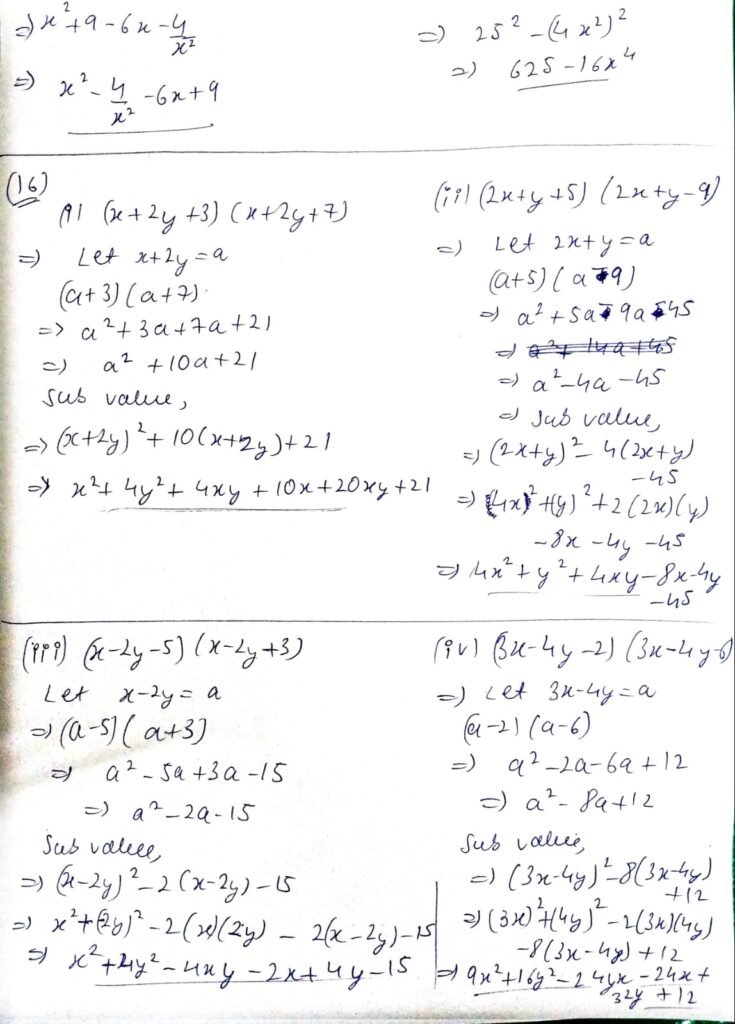 ⇒ x² + 9 - 6x - 4/x²
⇒ x² - 4/x² - 6x + 9
⇒ 25² - (4x²)²
⇒ 625 - 16x⁴
(16)
(i) (x+2y+3) (x+2y+7)
⇒ Let x+2y = a
(a+3) (a+7)
⇒ a² + 3a + 7a + 21
⇒ a² + 10a + 21
Sub value,
⇒ (x+2y)² + 10(x+2y) + 21
⇒ x² + 4y² + 4xy + 10x + 20xy + 21
(ii) (2x+y+5) (2x+y-9)
⇒ Let 2x+y = a
(a+5) (a-9)
⇒ a² + 5a - 9a - 45
⇒ a² + 14a + 45
⇒ a² - 4a - 45
⇒ Sub value,
⇒ (2x+y)² - 4(2x+y)
- 45
⇒ (4x)² + (y)² + 2(2x)(y)
- 8x - 4y - 45
⇒ 4x² + y² + 4xy - 8x - 4y
- 45
(iii) (x-2y-5) (x-2y+3)
Let x-2y = a
⇒ (a-5) (a+3)
⇒ a² - 5a + 3a - 15
⇒ a² - 2a - 15
Sub value,
⇒ (x-2y)² - 2(x-2y) - 15
⇒ x² + (2y)² - 2(x)(2y) - 2(x-2y) - 15
⇒ x² + 4y² - 4xy - 2x + 4y - 15
(iv) (3x-4y-2) (3x-4y-6)
⇒ Let 3x-4y = a
(a-2) (a-6)
⇒ a² - 2a - 6a + 12
⇒ a² - 8a + 12
Sub value,
⇒ (3x-4y)² - 8(3x-4y)
+ 12
⇒ (3x)² + (4y)² - 2(3x)(4y)
- 8(3x-4y) + 12
⇒ 9x² + 16y² - 24yx - 24x +
32y + 12